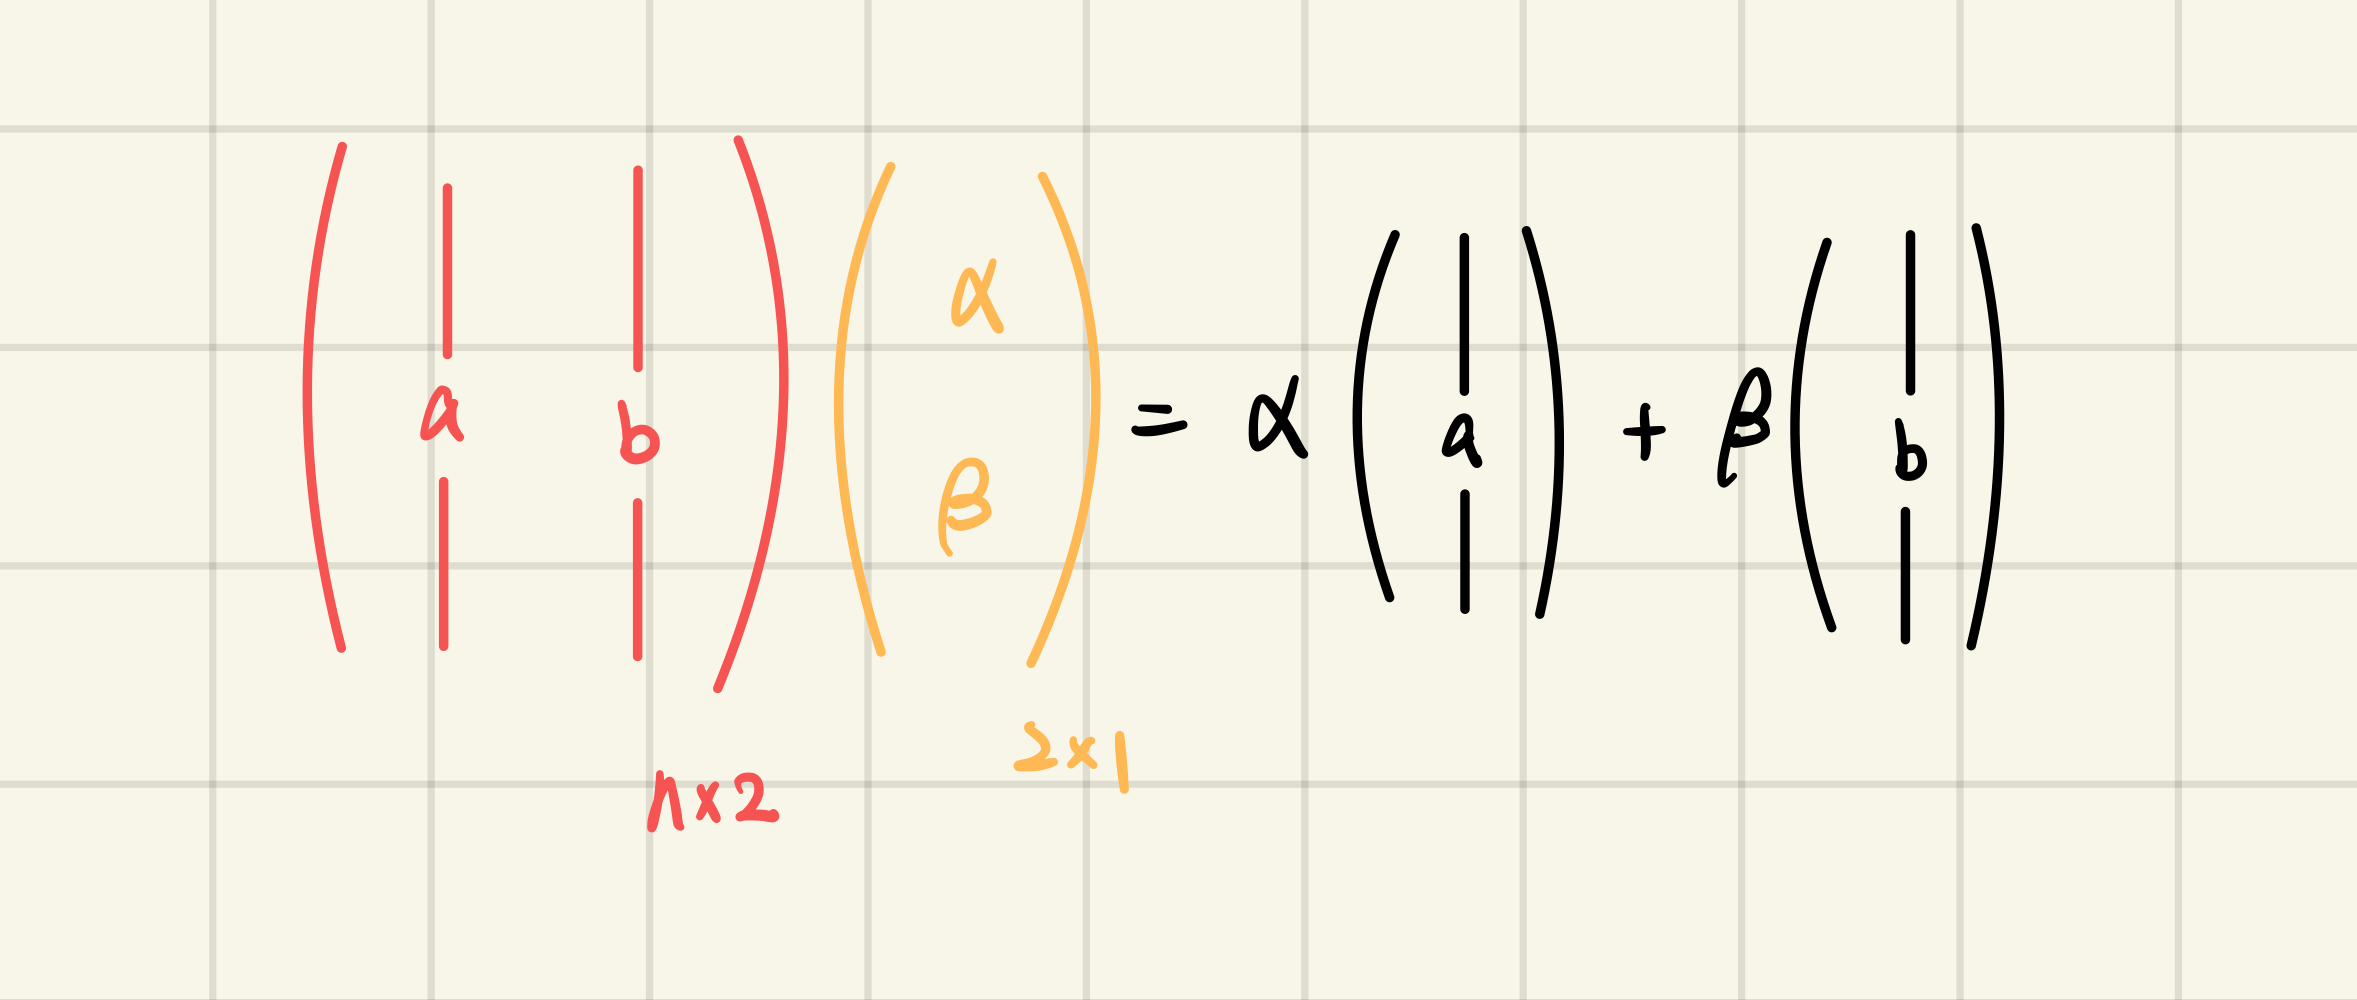 ( a b ) ( α β ) = α ( a ) + β ( b )
n×2 2×1